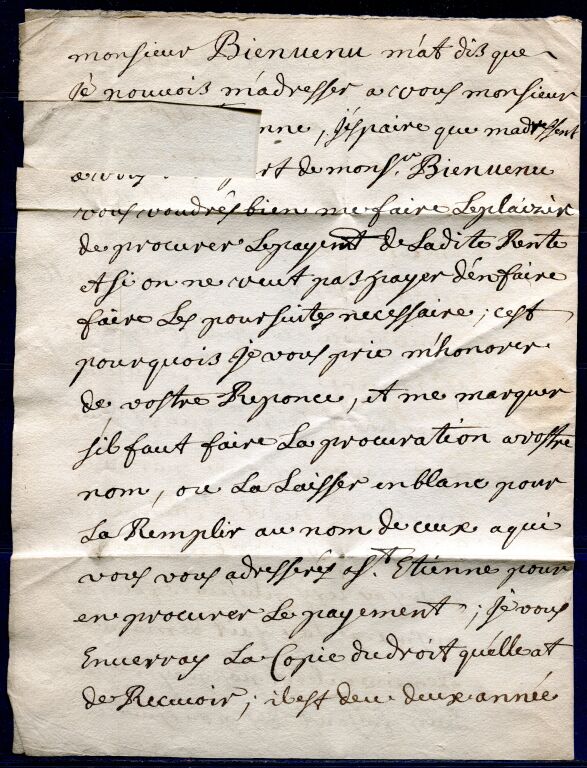 monsieur Bienvenu m'at dis que
Je pouvois m'adresser a vous monsieur
nne, j'éspaire que m'adressent
a vous rt de mons.r Bienvenu
vous voudrés bien me faire Le plaizir
de procurer Le payemt de Ladite Rente
et si on ne veut pas payer d'én faire
faire Les poursuites necessaire; c'est
pourquois Je vous prie m'honorer
de vostre Reponce, et me marquer
sil faut faire La procuration a vostre
nom, ou La Laisser en blanc pour
La Remplir au nom de ceux a qui
vous vous adresserés a S.t Etienne pour
en procurer Le payement; Je vous
Enverray La Copie du droit qu'elle at
de Recevoir; il est deu deux année